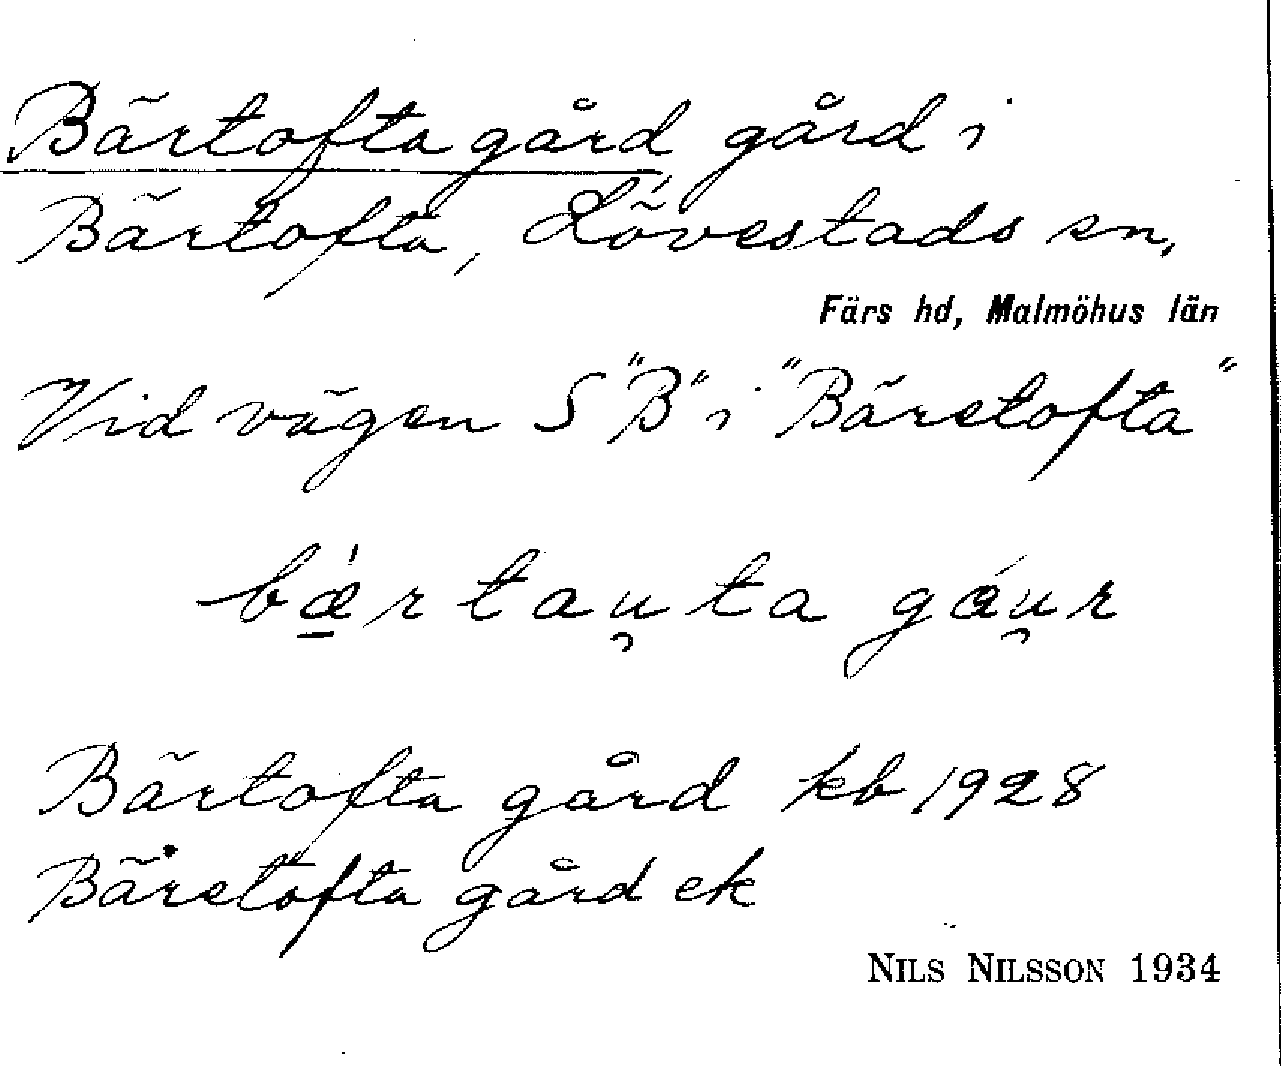 Bärtofta gård gård i
Bärtofta, Lövestads sn,
Färs hd, Malmöhus län
Vid vägen S "B" i "Bärstofta"
bǽ̱rtau̯ta gáu̯r
Bärtofta gård kb 1928
Bärstofta gård ek
NILS NILSSON 1934